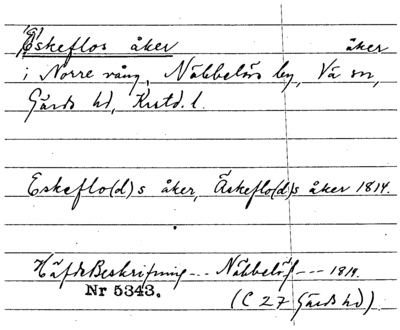 (E)skeflos åker åker
i Norre vång, Näbbelövs by, Vä sn,
Gärds hd, Krstd. l.
Eskeflo(d)s åker, Äskeflo(d)s åker 1814.
Häfde Beskrifning --- Näbbelöf --- 1814.
Nr 5343.
(C 27 Gärds hd).